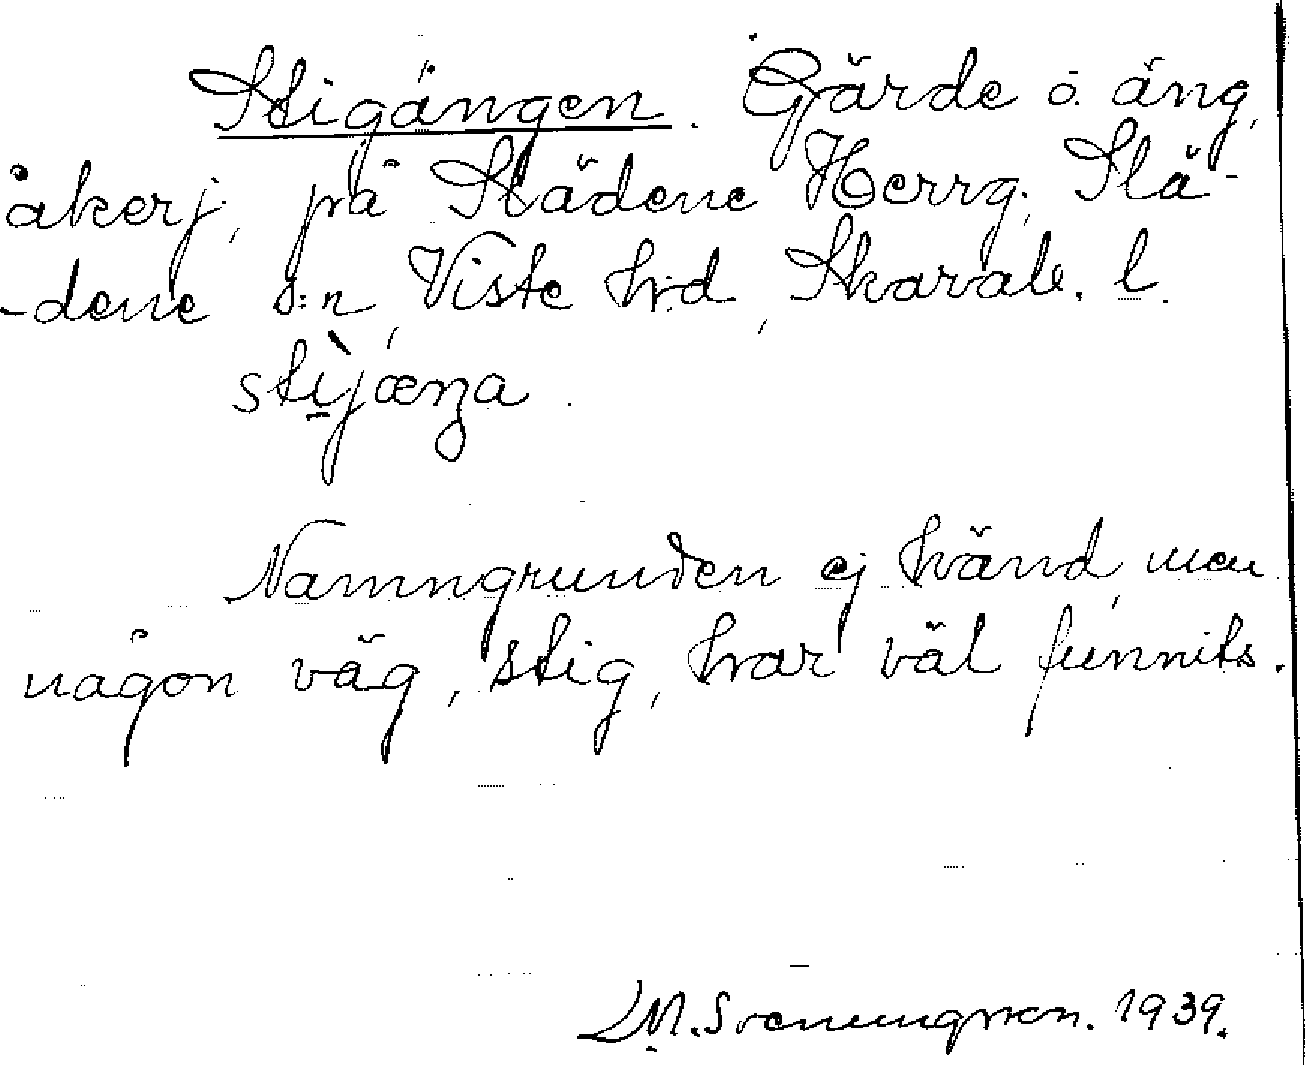 Stigängen. Gärde o. äng,
åkerj, på Slädene Herrg. Slä-
-dene s:n, Viste hrd, Skarab. l.
stìjænga.
Namngrunden ej känd, men
någon väg, stig, har väl funnits.
D.M. Svenungsson. 1939.